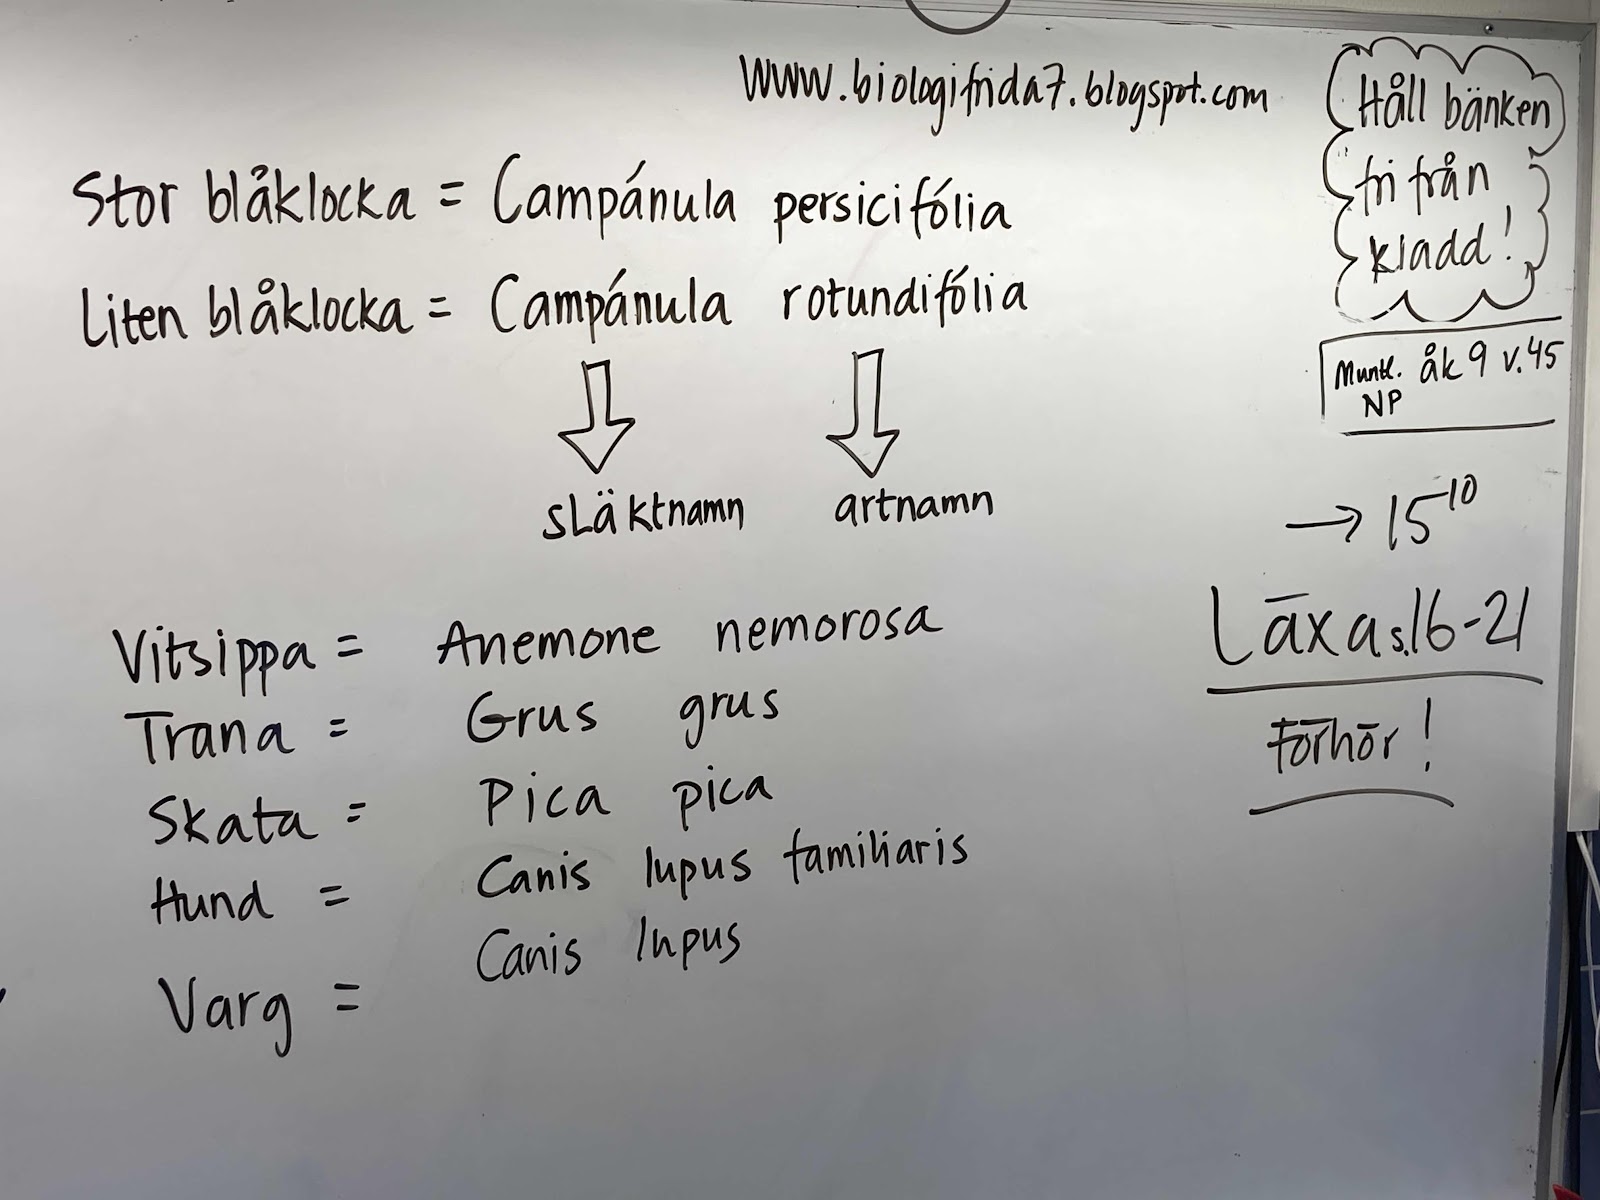 www.biologifrida7.blogspot.com
Stor blåklocka = Campánula persicifólia
Liten blåklocka = Campánula rotundifólia
släktnamn artnamn
Vitsippa = Anemone nemorosa
Trana = Grus grus
Skata = Pica pica
Hund = Canis lupus familiaris
Varg = Canis lupus
Håll bänken
fri från
kladd!
Muntl. åk 9 v.45
NP
→ 15 10
Läxa s.16-21
Förhör!